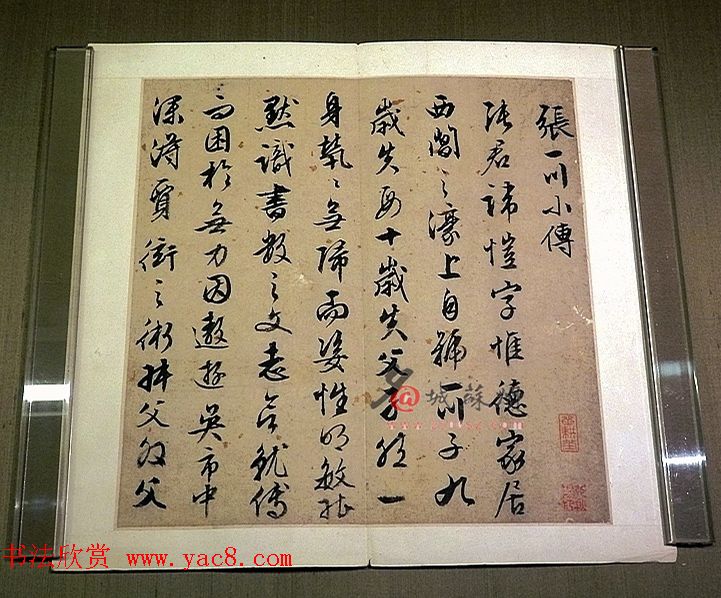 張一川小傳
張君諱愷字惟德家居
西閶之濠上自號一川子九
歲失母十歲失父孑然一
身煢々無歸而姿性明敏能
默識書數之文志欲就傅
而困於無力因遨遊吳市中
深得賈衒之術
父
父
@城蘇
书法欣赏 www.yac8.com